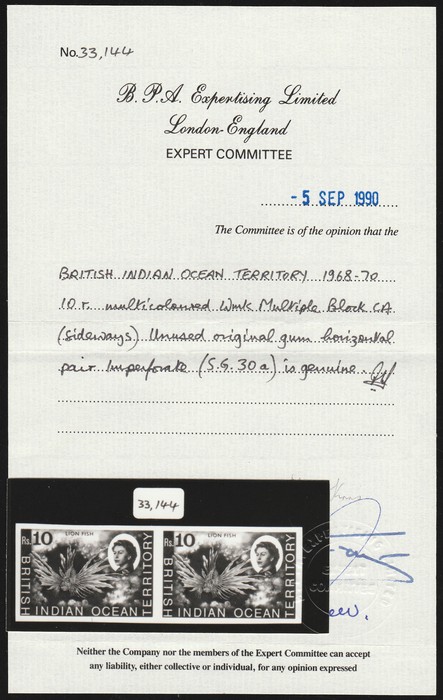 No. 33,144
B.P.A. Expertising Limited
London-England
EXPERT COMMITTEE
- 5 SEP 1990
The Committee is of the opinion that the
BRITISH INDIAN OCEAN TERRITORY 1968-70
10 r. multicoloured Wmk Multiple Block CA
(sideways) Unused original gum horizontal
pair Imperforate (S.G. 30a) is genuine.
33,144
Rs. 10 LION FISH
BRITISH INDIAN OCEAN TERRITORY
Rs. 10 LION FISH
BRITISH INDIAN OCEAN TERRITORY
Neither the Company nor the members of the Expert Committee can accept
any liability, either collective or individual, for any opinion expressed